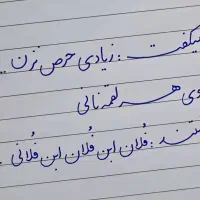 میگفت : زیادی حرص نزن ..
روی هر لقمه نانی
نوشتند : فُلان ابن فُلان ابن فُلانی .